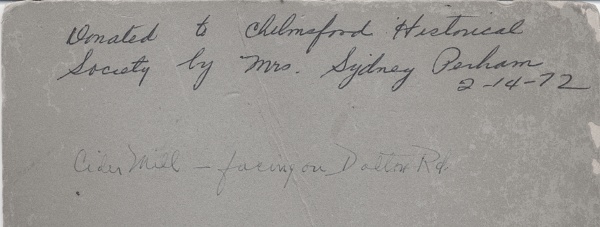 Donated to Chelmsford Historical
Society by Mrs. Sydney Perham
2-14-72
Cider Mill – facing on Dalton Rd.